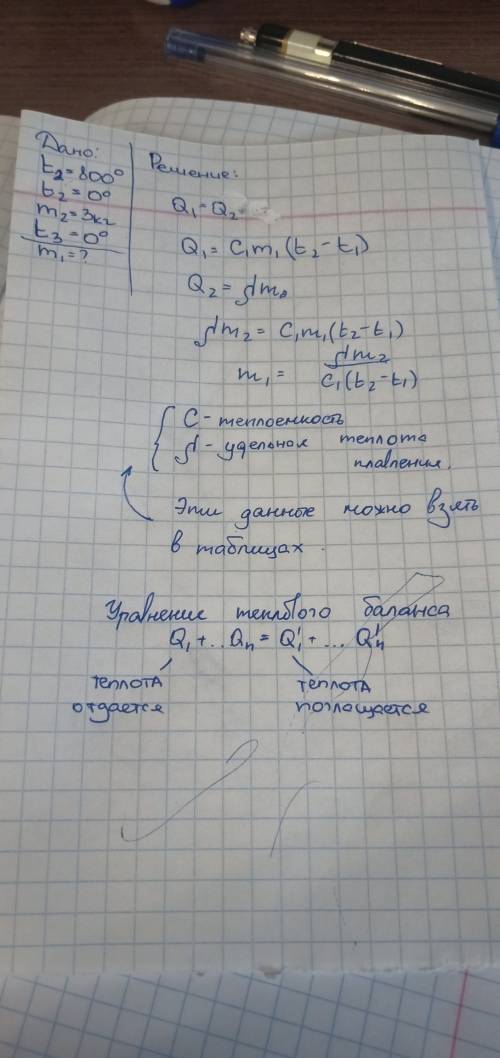 Дано:
t₂=800°
t₂=0°
m₂=3кг
t₃=0°
m₁=?
Решение:
Q₁=Q₂=
Q₁= C₁m₁(t₂-t₁)
Q₂= λm₂
λm₂= C₁m₁(t₂-t₁)
m₁= λm₂ / C₁(t₂-t₁)
C-теплоемкость
λ-удельная теплота
плавления.
Эти данные можно взять
в таблицах.
Уравнение теплового баланса
Q₁+...Qₙ=Q₁'+... Qₙ'
теплота
отдается
теплота
поглощается